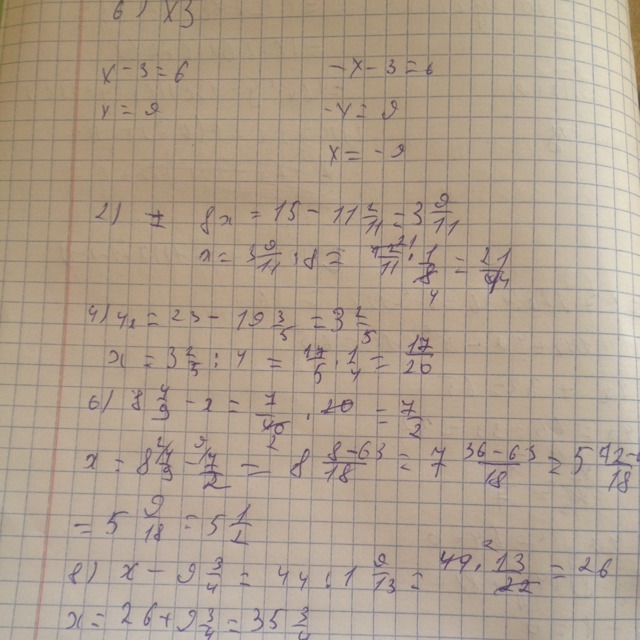 6) x3
x - 3 = 6
x = 9
-x - 3 = 6
-x = 9
x = -9
2) 8x = 15 - 11 2/11 = 3 9/11
x = 3 9/11 : 8 = 42 21/11 · 1/8 4 = 21/44
4) 4x = 23 - 19 3/5 = 3 2/5
x = 3 2/5 : 4 = 17/5 · 1/4 = 17/20
6) 8 4/9 - x = 7/40 2 · 20 = 7/2
x = 8 4/9 - 7/2 = 8 8-63/18 = 7 36-63/18 = 5 72-6/18
= 5 9/18 = 5 1/2
8) x - 9 3/4 = 44 : 1 9/13 = 44 2 · 13/22 = 26
x = 26 + 9 3/4 = 35 3/4